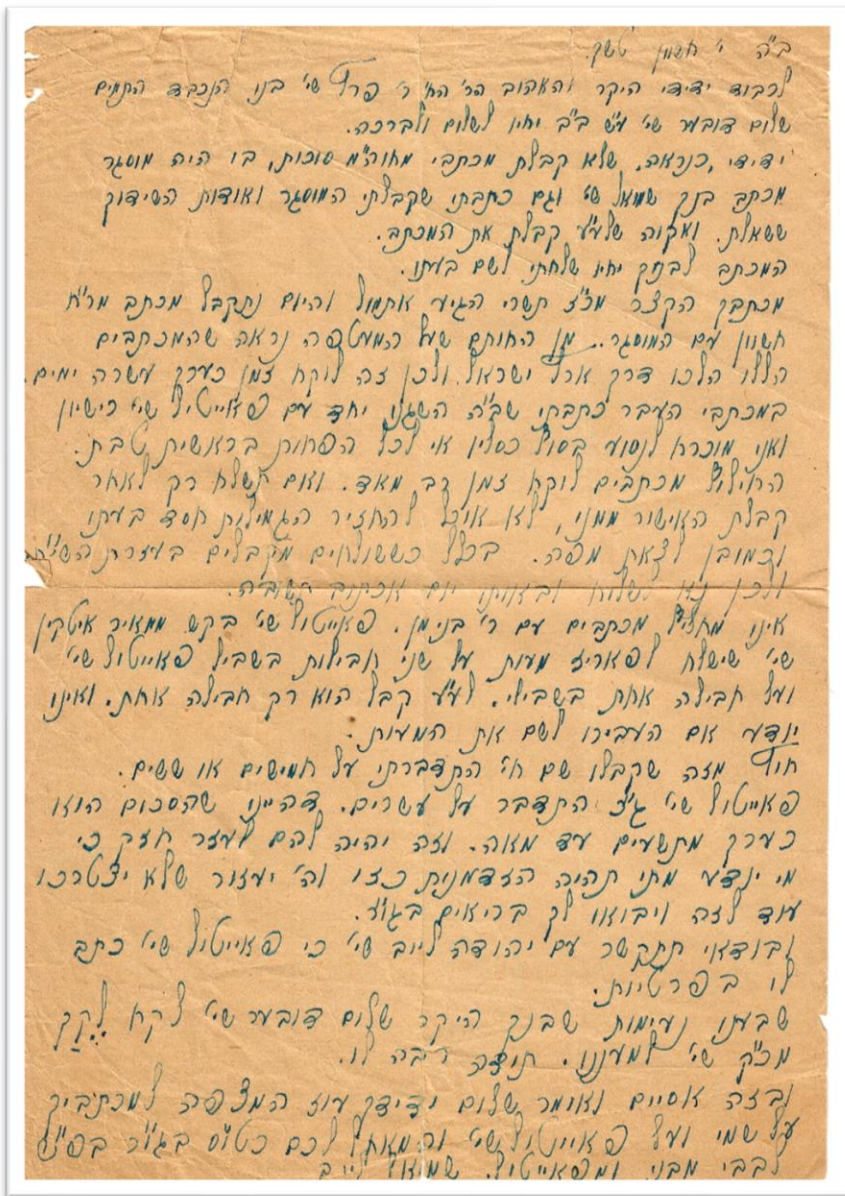 ב"ה י' חשוון תשך.
לכבוד ידידי היקר והאהוב הר' החי ר' פרץ שי' בנו הנכבד התמים
שלום דובער שי' עש ב"ב יחיו לשלום ולברכה.
ידידי, כנראה, שלא קבלת מכתבי מחוה"מ סוכות, בו היה מוסגר
מכתב בנך שמואל שי' וגם כתבתי שקבלתי המוסגר ואודות השידוך
ששאלת. ואקוה שלע"ע קבלת את המכתב.
המכתב לבניך יחיו שלחתי לשם בעתו.
מכתבך הקצר מכ"צ תשרי הגיע אתמול והיום נתקבל מכתב מר"ח
חשוון עם המוסגר. מן החותם שעל המעטפה נראה שהמכתבים
הללו הלכו דרך ארץ ישראל ולכן זה לוקח זמן כערך עשרה ימים.
במכתבי העבר כתבתי שב"ה השגנו יחד עם פאייטיל שי' רישיון
ואני מוכרח לנסוע בסוף כסלין או לכל הפחות בראשית טבת.
החילוף מכתבים לוקח זמן רב מאד. ואם תשלח רק לאחר
קבלת האישור ממני, לא אוכל להחזיר הגמילות חסד בעתו
וכמובן לצאת מפה. בכלל כששולחים מקבלים בעזרת השי"ת
ולכן נא לשלוח ובאותו יום אכתוב תשובה.
אינו מחליף מכתבים עם ר' בנימן. פאייטיל שי' בקש ממאיר איטקין
שי' שישלח לפאריז מעות על שני חבילות בשביל פאייטיל שי'
ועל חבילה אחת בשבילי. לע"ע קבל הוא רק חבילה אחת. ואינו
יודע אם העבירו לשם את המעות.
חוץ מזה שקבלו שם חי התדברתי על חמישים או ששים.
פאייטיל שי' ג"כ התדבר על עשרים. דהיינו שהסכום הוא
כערך מתשעים עד מאה. וזה יהיה להם לעזר חזק כי
מי יודע מתי תהיה הזדמנות כזו וה' יעזור שלא יצטרכו
עוד לזה ויבואו לך בריאים בגו"ר.
ובודאי תתקשר עם יהודה לייב שי' כי פאייטיל שי' כתב
לו בפרטיות.
שבעתו נעימות שבנך היקר שלום דובער שי' לקח לֶקַח
מכ"ק שי' למעננו. תודה רבה לו.
ובזה אסיים ואומר שלום ידידך עוז המצפה למכתביך
על שמי ועל פאייטיל שי' והמאחל לכם כט"ס בגו"ר בפ"ש
לבבי מבני ומפאייטיל. שמואל לייב